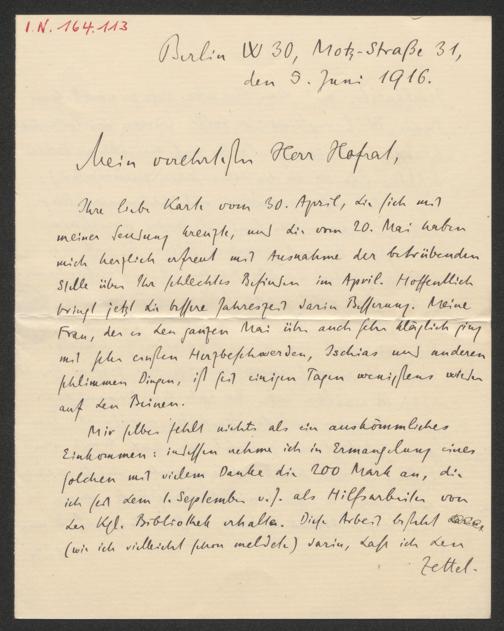 I.N. 164.113
Berlin W 30, Motz-Straße 31,
den 9. Juni 1916.
Mein verehrtester Herr Hofrat,
Ihre liebe Karte vom 30. April, die sich mit
meiner Sendung kreuzte, und die vom 20. Mai haben
mich herzlich erfreut mit Ausnahme der betrübenden
Stelle über Ihr schlechtes Befinden im April. Hoffentlich
bringt jetzt die bessere Jahreszeit darin Besserung. Meine
Frau, der es den ganzen Mai über auch sehr kläglich ging
mit sehr ernsten Herzbeschwerden, Ischias und anderen
schlimmen Dingen, ist seit einigen Tagen wenigstens wieder
auf den Beinen.
Mir selber fehlt nichts als ein auskömmliches
Einkommen: indessen nehme ich in Ermangelung eines
solchen mit vielem Danke die 200 Mark an, die
ich seit dem 1. September v. J. als Hilfsarbeiter von
der Kgl. Bibliothek erhalte. Diese Arbeit besteht
(wie ich vielleicht schon meldete) darin, daß ich den
Zettel-